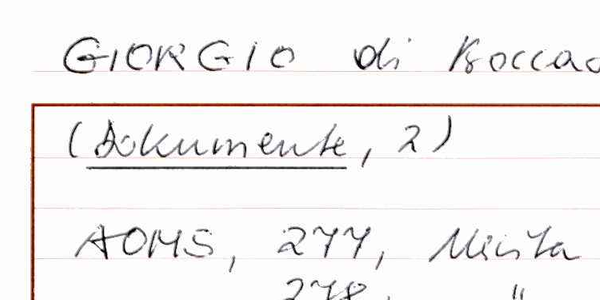 GIORGIO di Boccac
(Dokumente, 2)
AOMS, 277,
278, "